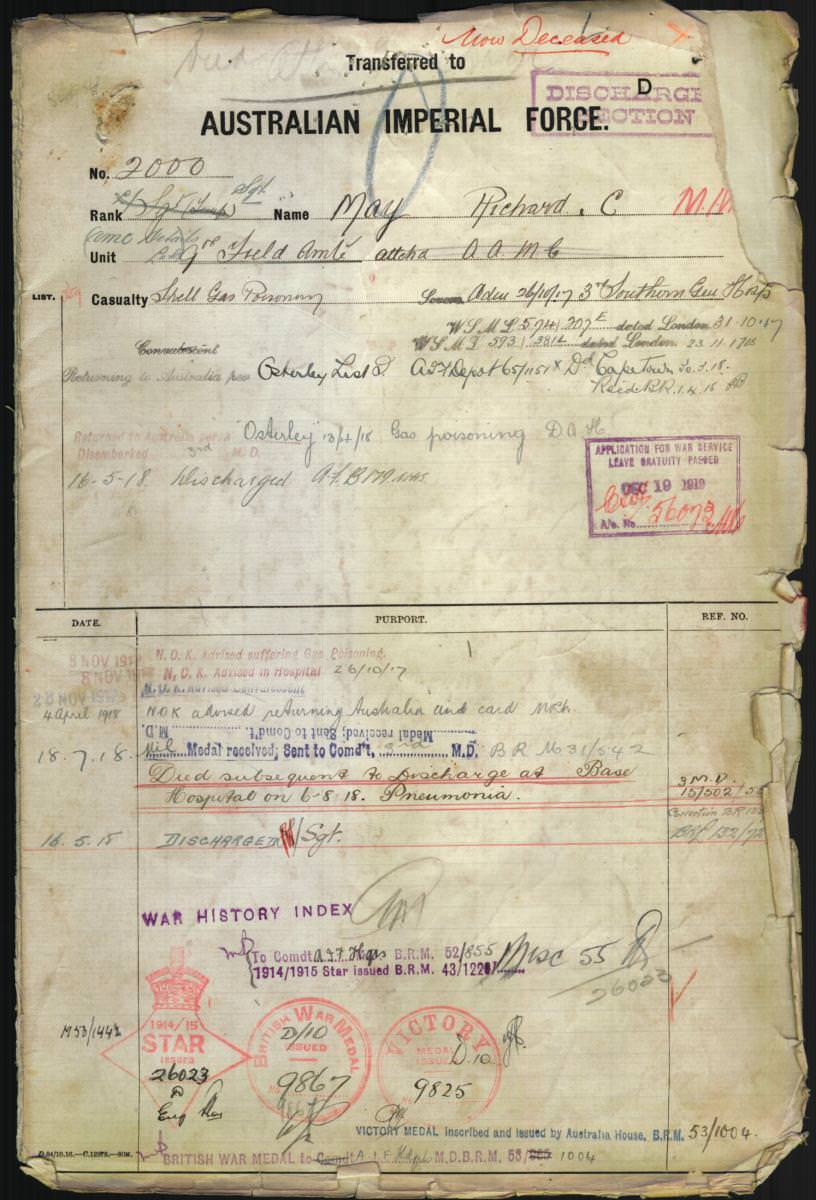 Now Deceased
Transferred to
D
DISCHARGE
SECTION
AUSTRALIAN IMPERIAL FORCE.
No. 2000
Sgt
Rank Sgt (Temp) Name May Richard. C M.M.
Unit 9th Field Amb attchd A A M C
LIST. Casualty Shell Gas Poisoning Adm 26/10/17 3rd Southern Gen Hosp
W S M L 574/207E dated London 31-10-17
593/3814 dated London. 23 11 17
Convalescent
Returning to Australia per Osterley List 8. A I F Depot 65/1151 x Dd Cape Town
Recd B.R. 1.4.18
Returned to Australia per "Osterley" 13/4/18 Gas poisoning D A H
Disembarked 3rd M. D.
16-5-18. Discharged A.F. B179
APPLICATION FOR WAR SERVICE
LEAVE GRATUITY PASSED
DEC 19 1919
A/c. No. 56073
DATE. PURPORT. REF. NO.
8 NOV 191
N. O. K. Advised suffering Gas Poisoning.
N. O. K. Advised in Hospital 26/10/17
4 April 1918 N O K advised returning Australia and card
Medal received; Sent to Comd't, M. D.
18.7.18. Nil Medal received; Sent to Comd't, 3rd M.D. B R M 31/542
Died subsequent to Discharge at Base 3 M. D.
Hospital on 6-8-18. Pneumonia. 15/502/
16.5.18 DISCHARGED Sgt. BRM 132/72
WAR HISTORY INDEX
To Comdt A I F Hqrs B.R.M. 52/855 Misc 55
1914/1915 Star issued B.R.M. 43/1220 26023
M53/1442
1914/15
STAR
ISSUED
26023
BRITISH WAR MEDAL
D/10
ISSUED
9867
9867
VICTORY
MEDAL
ISSUED
D.10
9825
VICTORY MEDAL inscribed and issued by Australia House, B.R.M. 53/1004.
D.94/10.16.—C.12875.—50M.
BRITISH WAR MEDAL to Comdt A.I.F. Hqrs M.D.B.R.M. 53/ 1004